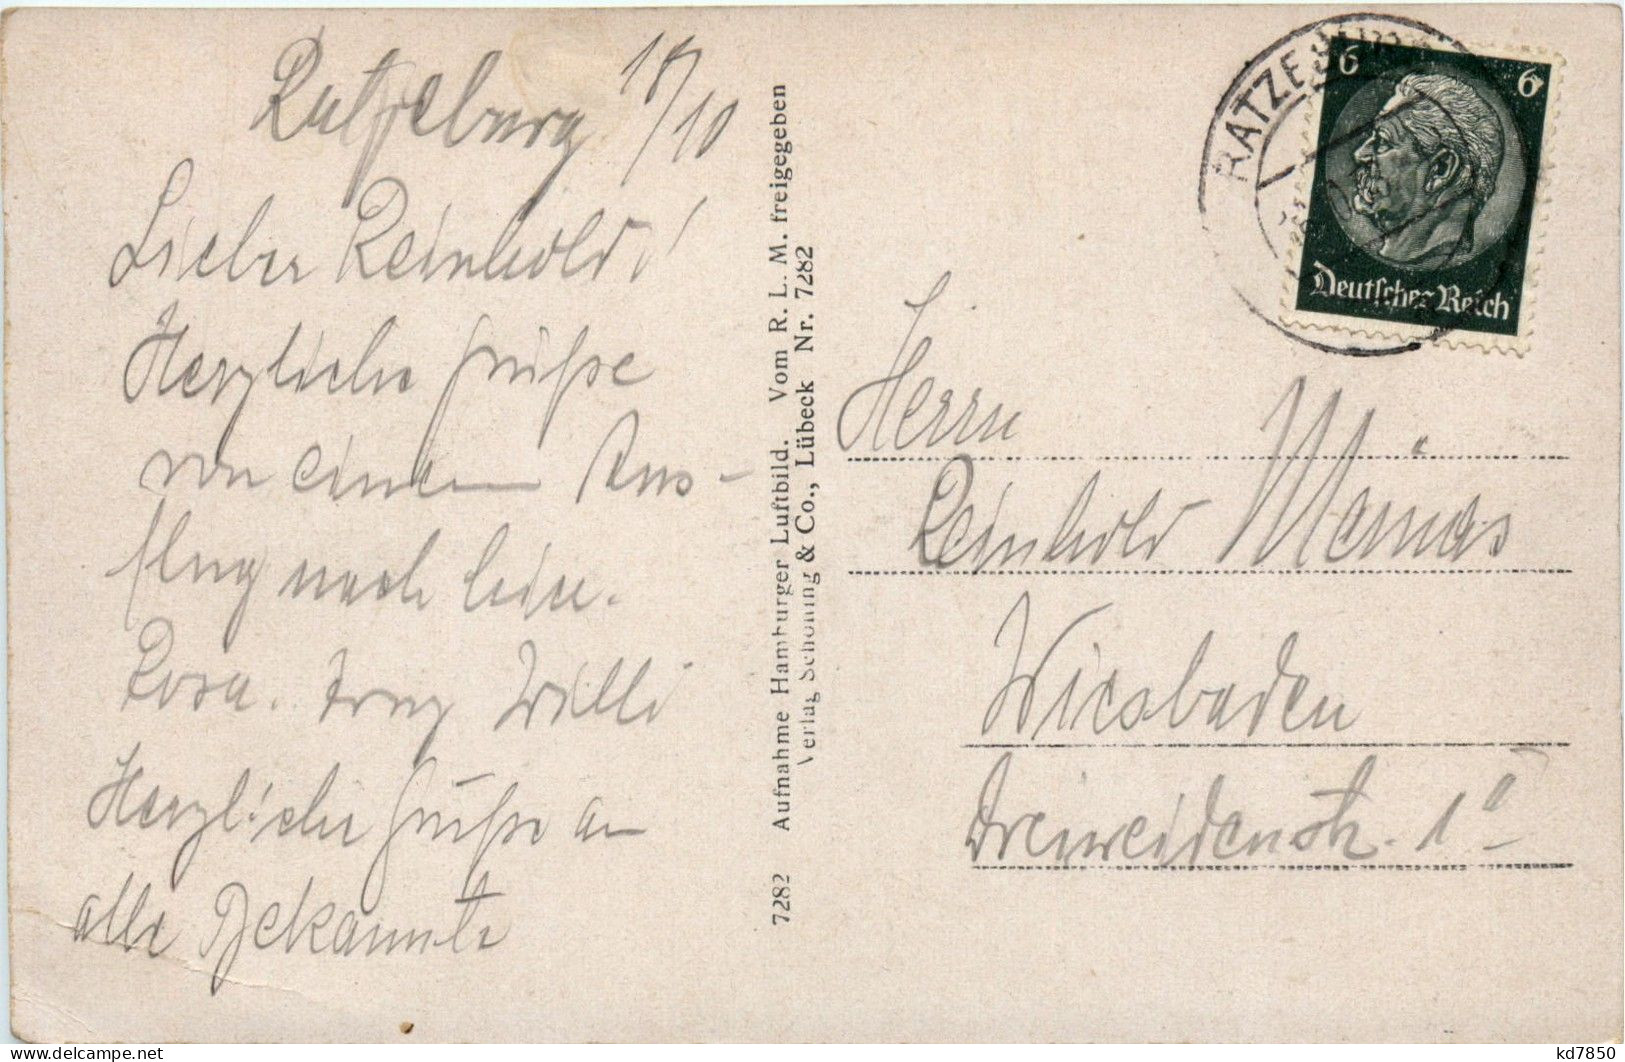 Ratzeburg 18/10
Lieber Reinhold!
Herzliche Grüße
von einem Aus-
flug nach hier.
Rosa. Willi
Herzliche Grüße an
alle Bekannte
7282 Aufnahme Hamburger Luftbild. Vom R. L. M. freigegeben
Verlag Schöning & Co., Lübeck Nr. 7282
RATZEBURG
6 6
Deutsches Reich
Herrn
Reinhold
Wiesbaden
Dreiweidenstr. 1a
kd7850